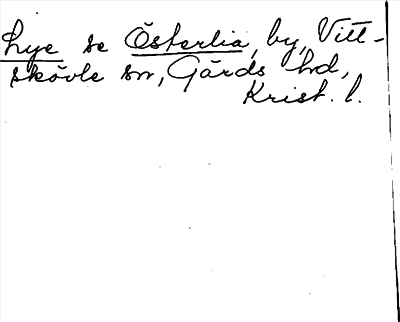 Lye se Österlia, by, Vitt-
skövle sn, Gärds hd,
Krist. l.